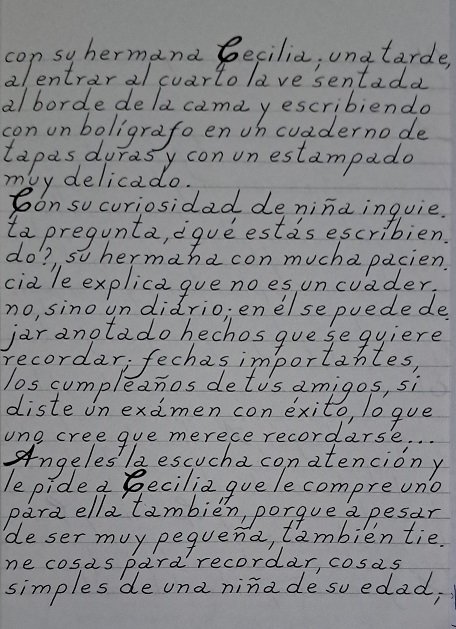 con su hermana Cecilia; una tarde,
al entrar al cuarto la ve sentada
al borde de la cama y escribiendo
con un bolígrafo en un cuaderno de
tapas duras y con un estampado
muy delicado.
Con su curiosidad de niña inquie.
ta pregunta, ¿qué estás escribien.
do?, su hermana con mucha pacien.
cia le explica que no es un cuader.
no, sino un diario; en él se puede de
jar anotado hechos que se quiere
recordar; fechas importantes,
los cumpleaños de tus amigos, si
diste un exámen con éxito, lo que
uno cree que merece recordarse...
Angeles la escucha con atención y
le pide a Cecilia que le compre uno
para ella también, porque a pesar
de ser muy pequeña, también tie.
ne cosas para recordar, cosas
simples de una niña de su edad;